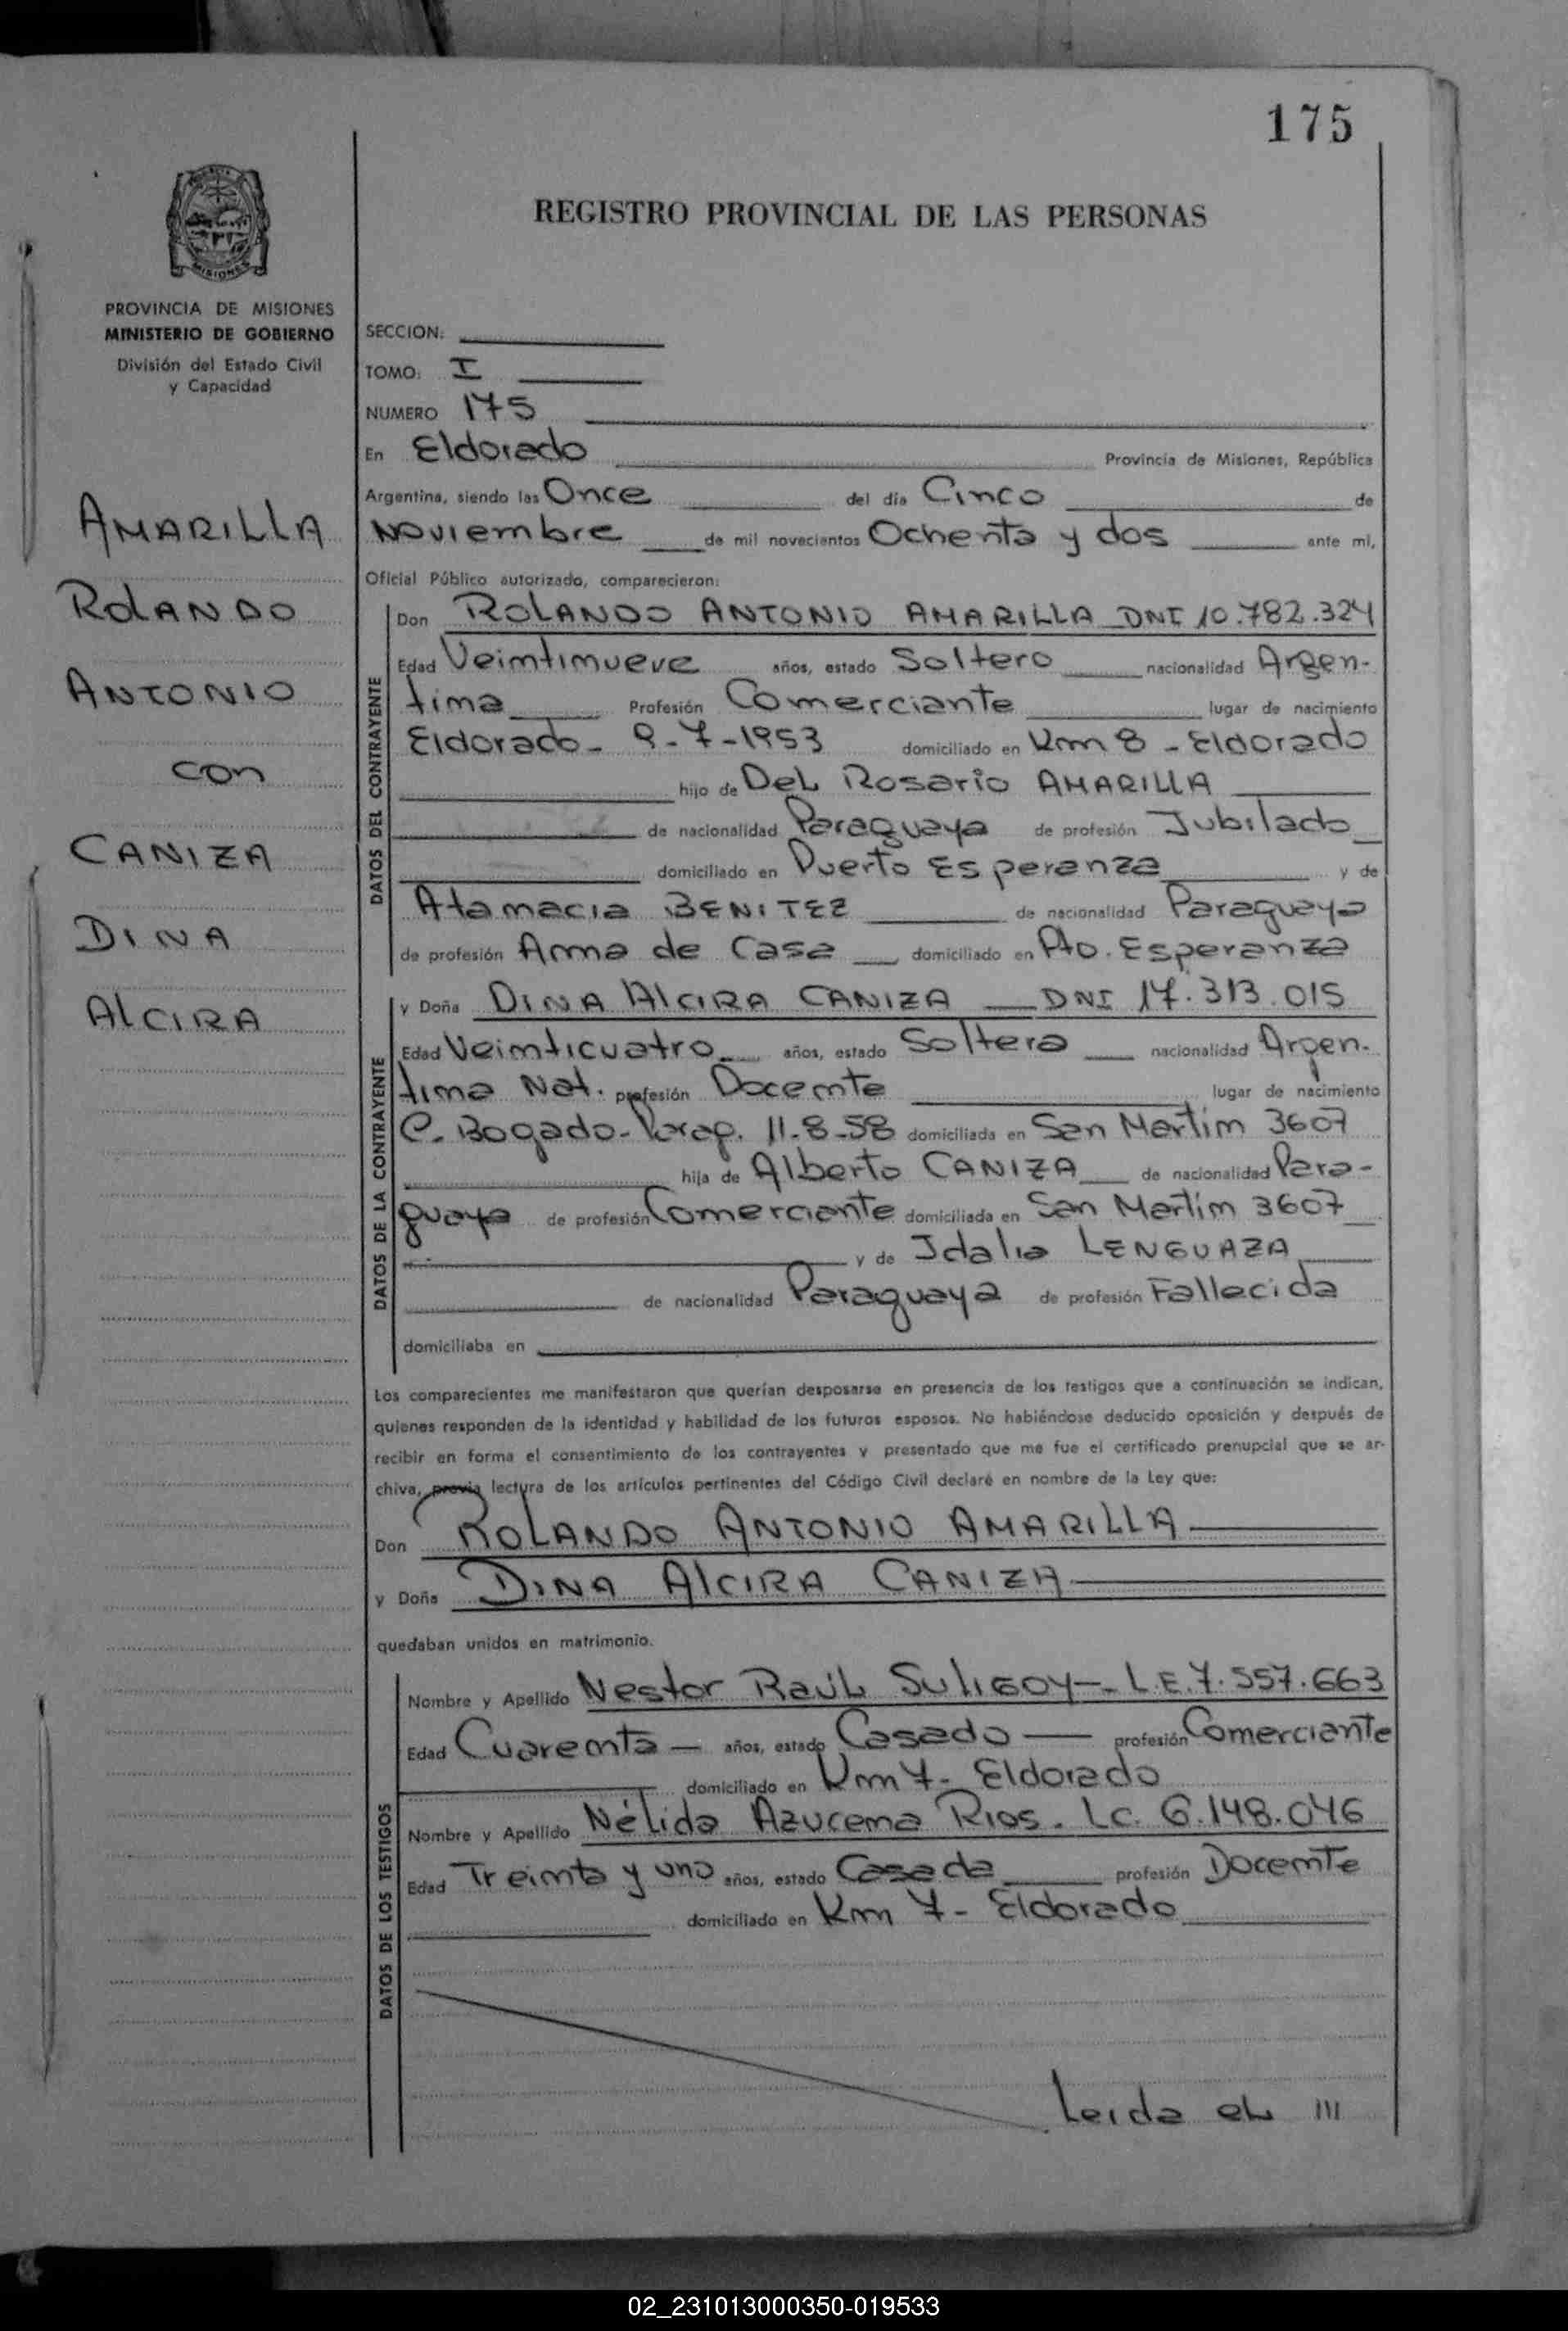 175
MISIONES
REGISTRO PROVINCIAL DE LAS PERSONAS
PROVINCIA DE MISIONES
MINISTERIO DE GOBIERNO
División del Estado Civil
y Capacidad
AMARILLA
ROLANDO
ANTONIO
con
CANIZA
DINA
ALCIRA
SECCION:
TOMO: I
NUMERO 175
En Eldorado Provincia de Misiones, República
Argentina, siendo las Once del día Cinco de
Noviembre de mil novecientos Ochenta y dos ante mi,
Oficial Público autorizado, comparecieron:
DATOS DEL CONTRAYENTE
Don ROLANDO ANTONIO AMARILLA DNI 10.782.324
Edad Veintinueve años, estado Soltero nacionalidad Argen-
tina Profesión Comerciante lugar de nacimiento
Eldorado - 9-7-1953 domiciliado en Km 8 - Eldorado
hijo de Del Rosario AMARILLA
de nacionalidad Paraguaya de profesión Jubilado
domiciliado en Puerto Esperanza y de
Atamacia BENITEZ de nacionalidad Paraguaya
de profesión Ama de Casa domiciliado en Pto. Esperanza
DATOS DE LA CONTRAYENTE
y Doña DINA ALCIRA CANIZA DNI 17.313.015
Edad Veinticuatro años, estado Soltera nacionalidad Argen-
tina Nat. profesión Docente lugar de nacimiento
C. Bogado - Parag. 11-8-58 domiciliada en San Martin 3607
hija de Alberto CANIZA de nacionalidad Para-
guaya de profesión Comerciante domiciliada en San Martin 3607
y de Idalia LENGUAZA
de nacionalidad Paraguaya de profesión Fallecida
domiciliaba en
Los comparecientes me manifestaron que querían desposarse en presencia de los testigos que a continuación se indican,
quienes responden de la identidad y habilidad de los futuros esposos. No habiéndose deducido oposición y después de
recibir en forma el consentimiento de los contrayentes y presentado que me fue el certificado prenupcial que se ar-
chiva, previa lectura de los artículos pertinentes del Código Civil declaré en nombre de la Ley que:
Don ROLANDO ANTONIO AMARILLA
y Doña DINA ALCIRA CANIZA
quedaban unidos en matrimonio.
DATOS DE LOS TESTIGOS
Nombre y Apellido Nestor Raúl SULIGOY - L.E. 7.557.663
Edad Cuarenta años, estado Casado profesión Comerciante
domiciliado en Km 7 - Eldorado
Nombre y Apellido Nélida Azucena Rios. Lc. 6.148.046
Edad Treinta y uno años, estado Casada profesión Docente
domiciliado en Km 7 - Eldorado
Leida el ///
02_231013000350-019533